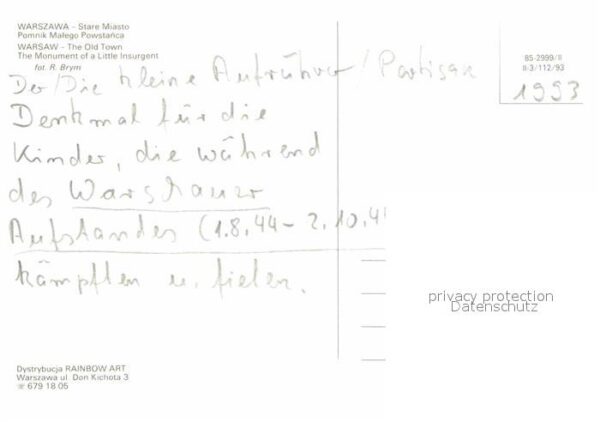 WARSZAWA - Stare Miasto
Pomnik Małego Powstańca
WARSAW - The Old Town
The Monument of a Little Insurgent
fot. R. Brym
85-2999/II
II-3/112/93
1993
Der/Die kleine Aufrührer/Partisan
Denkmal für die
Kinder, die während
des Warschauer
Aufstandes (1.8.44 - 2.10.4
kämpften u. fielen.
privacy protection
Datenschutz
Dystrybucja RAINBOW ART
Warszawa ul Don Kichota 3
☏ 679 18 05